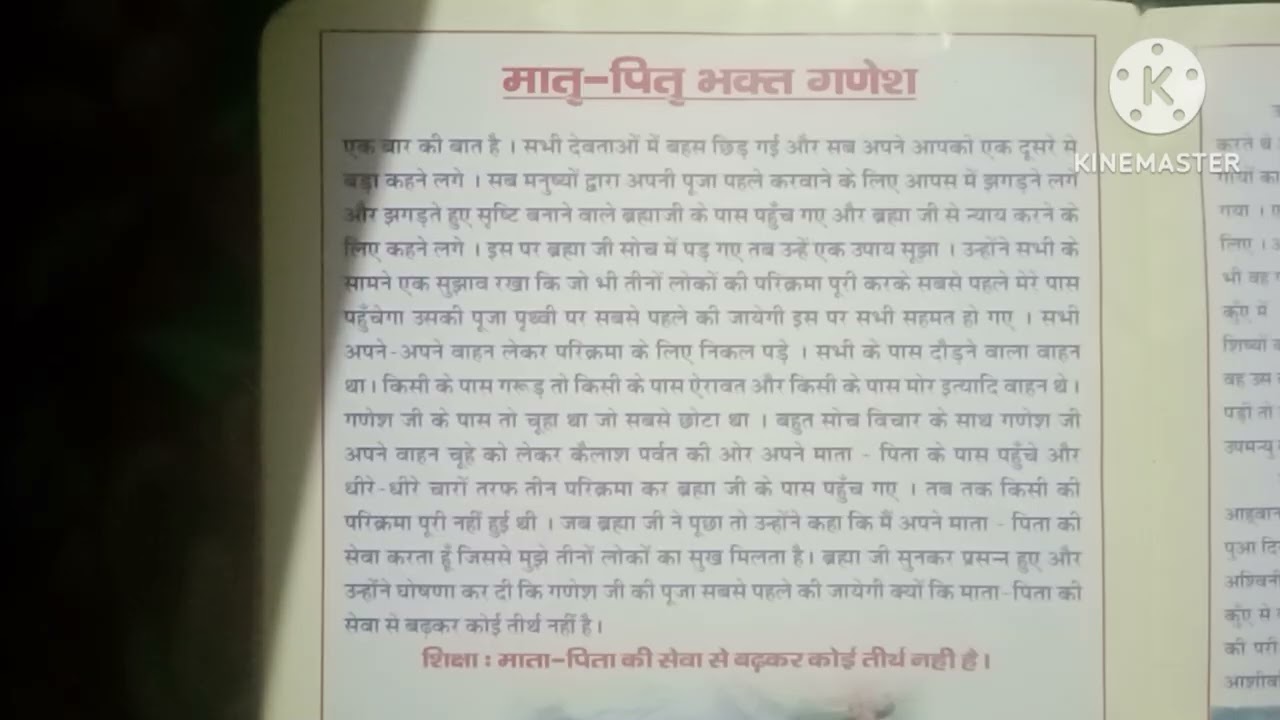 मातृ-पितृ भक्त गणेश
एक बार की बात है । सभी देवताओं में बहस छिड़ गई और सब अपने आपको एक दूसरे से
बड़ा कहने लगे । सब मनुष्यों द्वारा अपनी पूजा पहले करवाने के लिए आपस में झगड़ने लगे
और झगड़ते हुए सृष्टि बनाने वाले ब्रह्माजी के पास पहुँच गए और ब्रह्मा जी से न्याय करने के
लिए कहने लगे । इस पर ब्रह्मा जी सोच में पड़ गए तब उन्हें एक उपाय सूझा । उन्होंने सभी के
सामने एक सुझाव रखा कि जो भी तीनों लोकों की परिक्रमा पूरी करके सबसे पहले मेरे पास
पहुँचेगा उसकी पूजा पृथ्वी पर सबसे पहले की जायेगी इस पर सभी सहमत हो गए । सभी
अपने-अपने वाहन लेकर परिक्रमा के लिए निकल पड़े । सभी के पास दौड़ने वाला वाहन
था। किसी के पास गरूड़ तो किसी के पास ऐरावत और किसी के पास मोर इत्यादि वाहन थे ।
गणेश जी के पास तो चूहा था जो सबसे छोटा था । बहुत सोच विचार के साथ गणेश जी
अपने वाहन चूहे को लेकर कैलाश पर्वत की ओर अपने माता - पिता के पास पहुँचे और
धीरे-धीरे चारों तरफ तीन परिक्रमा कर ब्रह्मा जी के पास पहुँच गए । तब तक किसी की
परिक्रमा पूरी नहीं हुई थी । जब ब्रह्मा जी ने पूछा तो उन्होंने कहा कि मैं अपने माता - पिता की
सेवा करता हूँ जिससे मुझे तीनों लोकों का सुख मिलता है। ब्रह्मा जी सुनकर प्रसन्न हुए और
उन्होंने घोषणा कर दी कि गणेश जी की पूजा सबसे पहले की जायेगी क्यों कि माता-पिता की
सेवा से बढ़कर कोई तीर्थ नहीं है।
शिक्षा : माता-पिता की सेवा से बढ़कर कोई तीर्थ नही है।
KINEMASTER
करते थे
गायों का
गया ।
लिए ।
भी वह
कुँए में
शिष्यों
वह उस
पड़ी तो
उपमन्यु
आह्वान
पुआ
अश्विनी
कुँए से
की परी